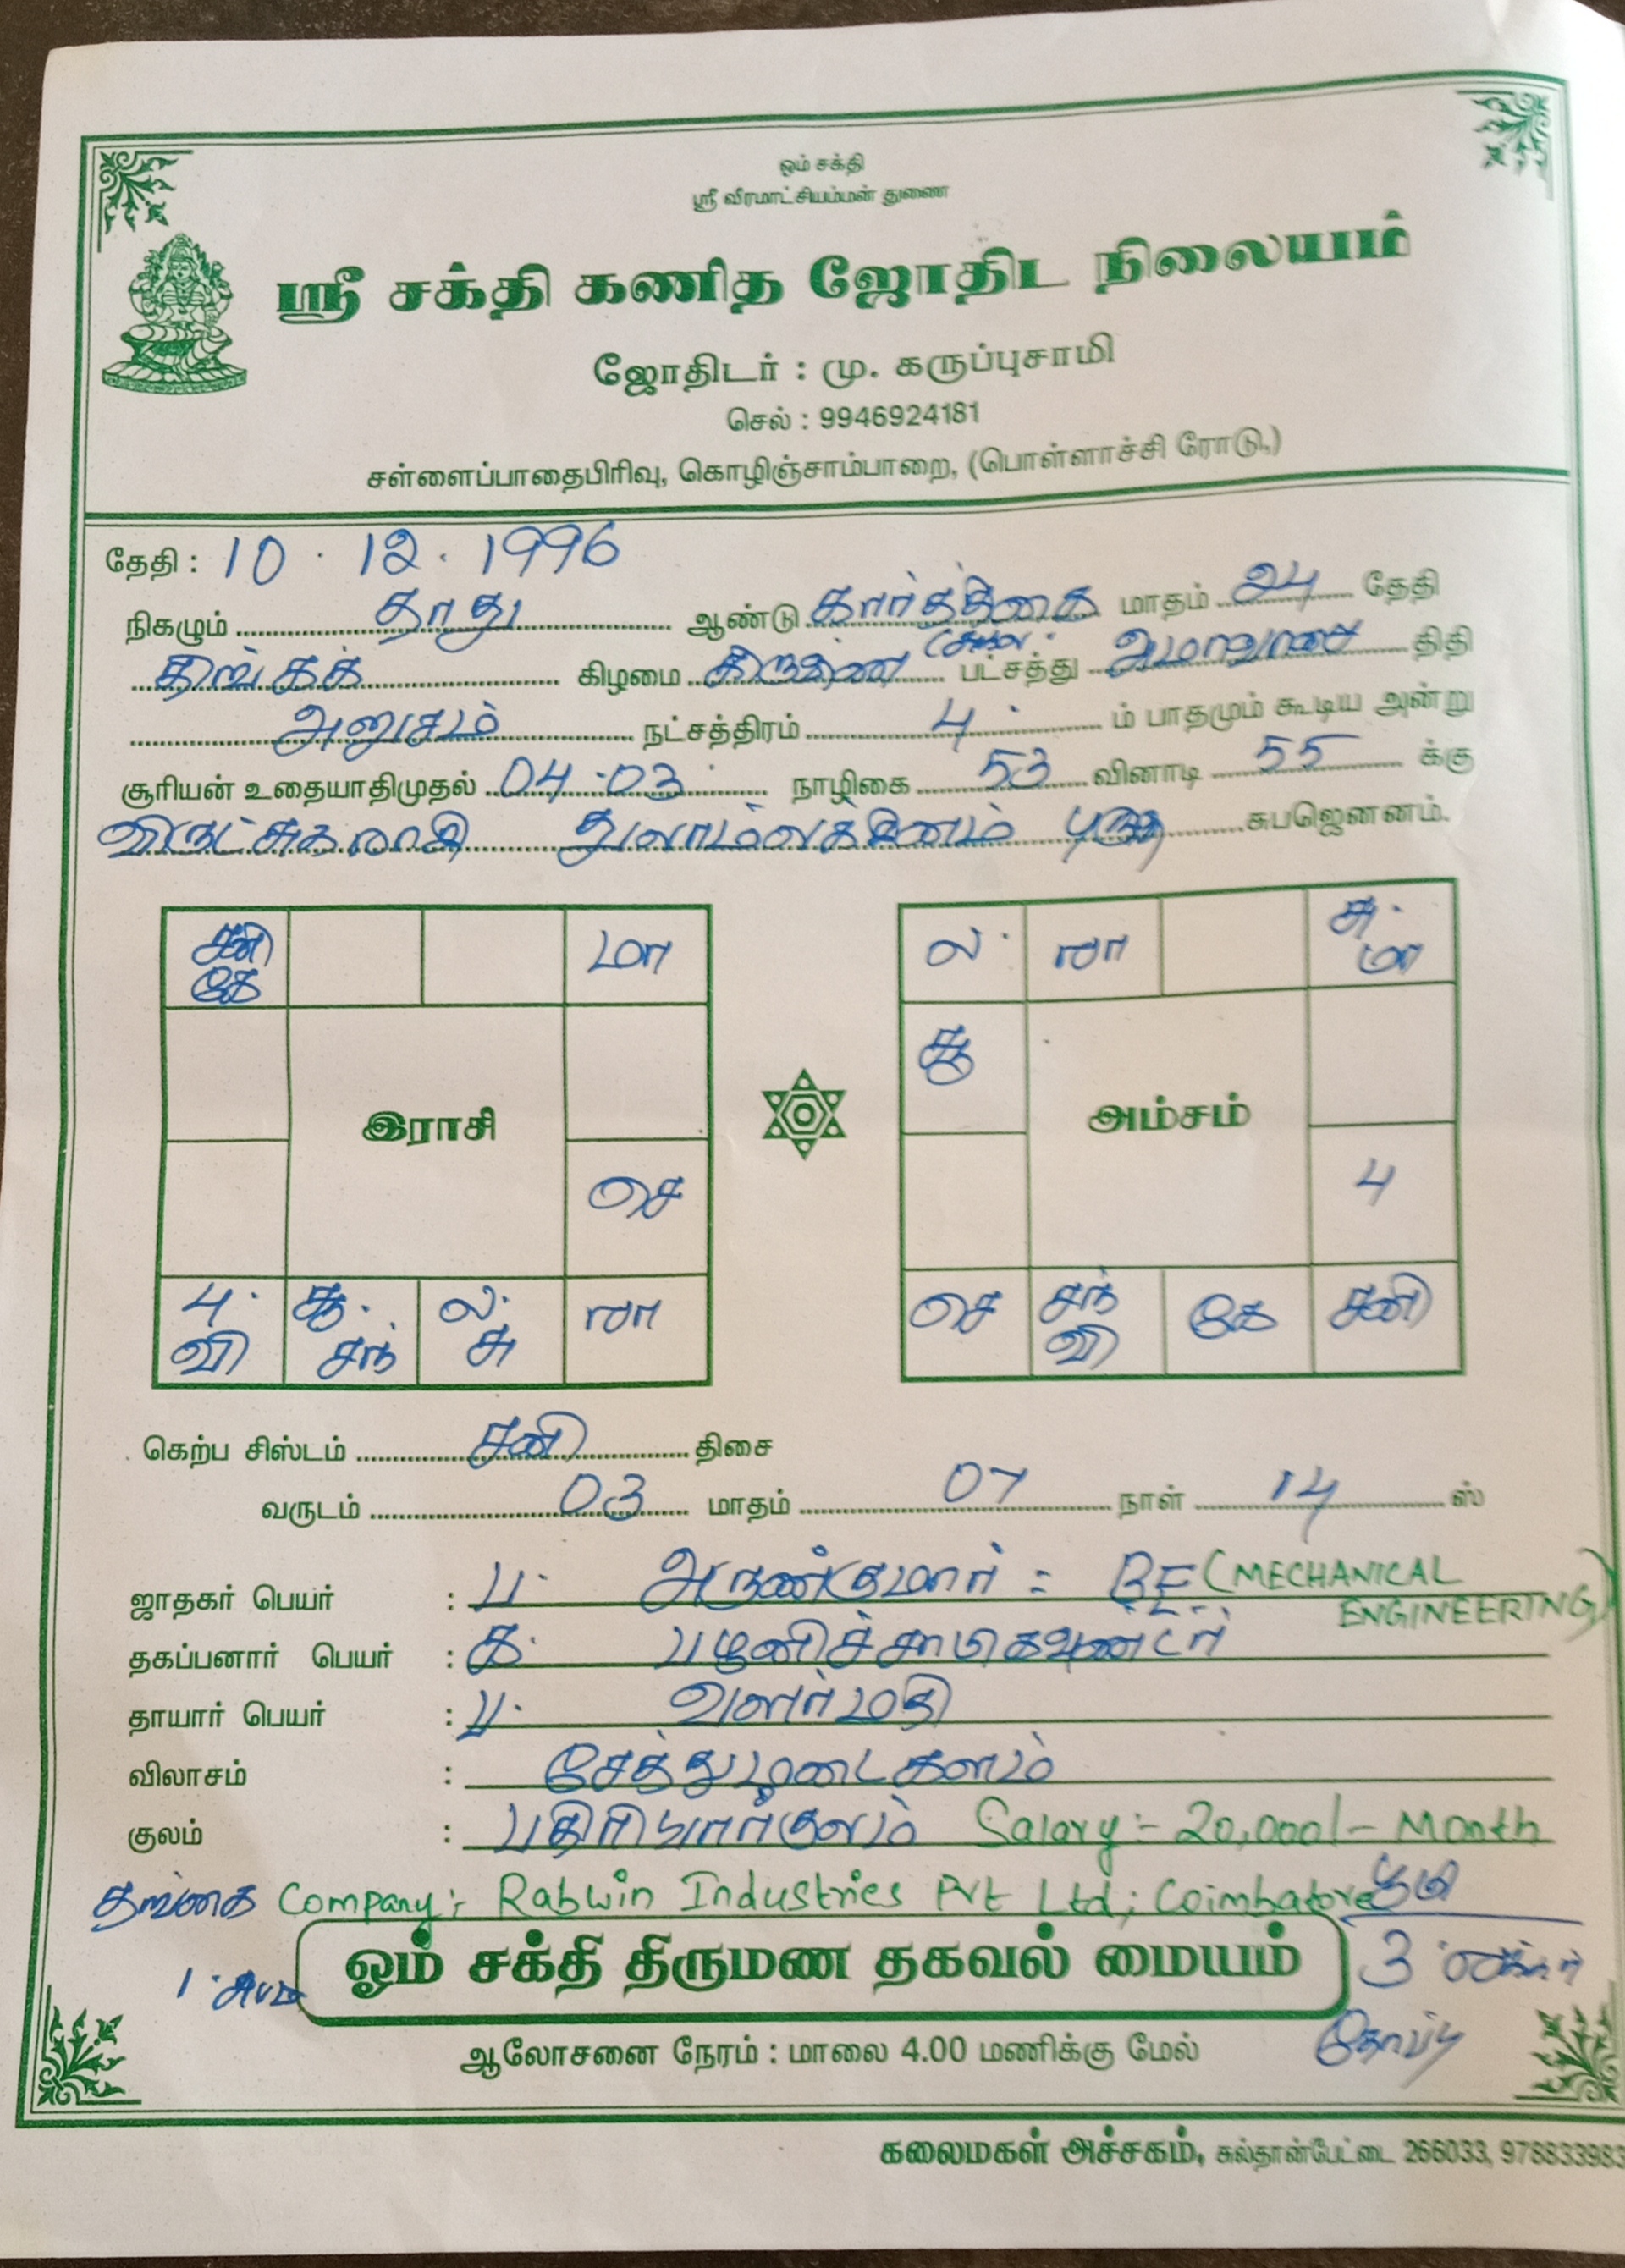 ஓம் சக்தி
ஸ்ரீ வீரமாட்சியம்மன் துணை
ஸ்ரீ சக்தி கணித ஜோதிட நிலையம்
ஜோதிடர் : மு. கருப்புசாமி
செல் : 9946924181
சள்ளைப்பாதைபிரிவு, கொழிஞ்சாம்பாறை, (பொள்ளாச்சி ரோடு,)
தேதி : 10 . 12 . 1996
நிகழும் தாது ஆண்டு கார்த்திகை மாதம் 24 தேதி
திங்கக் கிழமை கிருஷ்ண பட்சத்து அமாவாசை திதி
அனுசம் நட்சத்திரம் 4 ம் பாதமும் கூடிய அன்று
சூரியன் உதையாதிமுதல் 04 : 03 நாழிகை 53 வினாடி 55 க்கு
விருட்சுகராசி துலாம்லக்கினம் சுபஜெனனம்.
சனி கே மா
ல சு மா
ரா
சூ
இராசி
அம்சம்
செ
4
4 வி சூ சந் ல சு ரா
செ சந் வி கே சனி
கெற்ப சிஸ்டம் சனி திசை
வருடம் 03 மாதம் 07 நாள் 14 ஸ்
ஜாதகர் பெயர் : ப. அருண்குமார் : BE (MECHANICAL ENGINEERING)
தகப்பனார் பெயர் : க. பழனிச்சாமிகவுண்டர்
தாயார் பெயர் : ப. வளர்மதி
விலாசம் : சேத்துமடைகளம்
குலம் : பதிரியார்குலம் Salary :- 20,000/- Month
தங்கை Company :- Rabwin Industries Pvt Ltd; Coimbatore பூமி
ஓம் சக்தி திருமண தகவல் மையம் 3 ஏக்கர்
ஆலோசனை நேரம் : மாலை 4.00 மணிக்கு மேல் தோப்பு
கலைமகள் அச்சகம், சுல்தான்பேட்டை 266033, 978833983